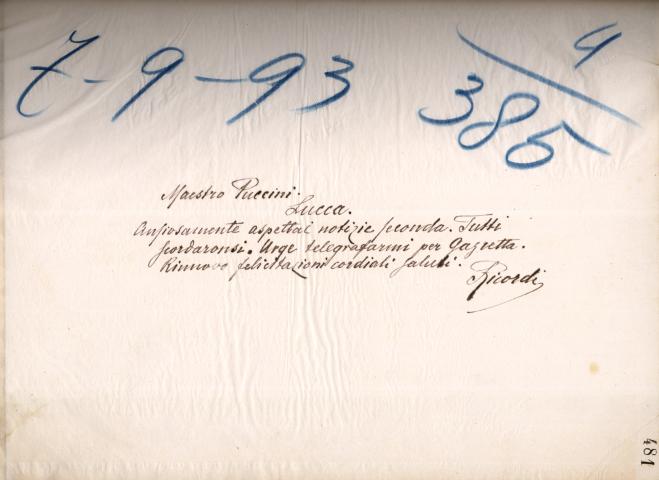 7-9-93
4
385
Maestro Puccini.
Lucca.
Ansiosamente aspettai notizie seconda. Tutti
scordaronsi. Urge telegrafarmi per Gazzetta.
Rinnovo felicitazioni cordiali saluti.
Ricordi
481